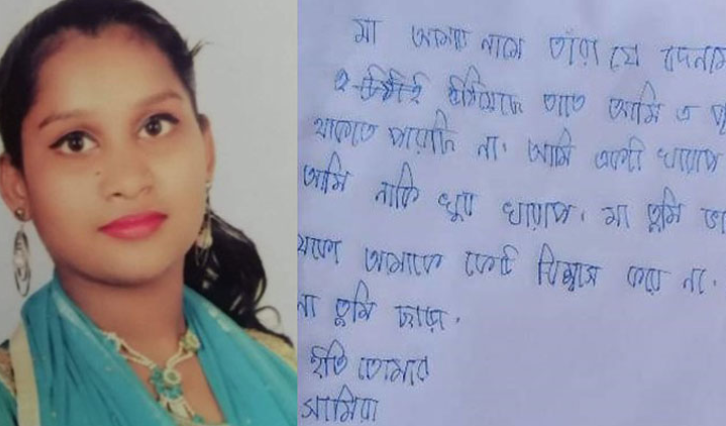 মা আমার নামে তাঁরা যে বদনাম
তাতে আমি এ
থাকতে পারছি না। আমি একটা খারাপ
আমি নাকি খুব খারাপ। মা তুমি
আমাকে কেউ বিশ্বাস করে না।
তুমি ছাড়া।
ইতি তোমার
সামিরা